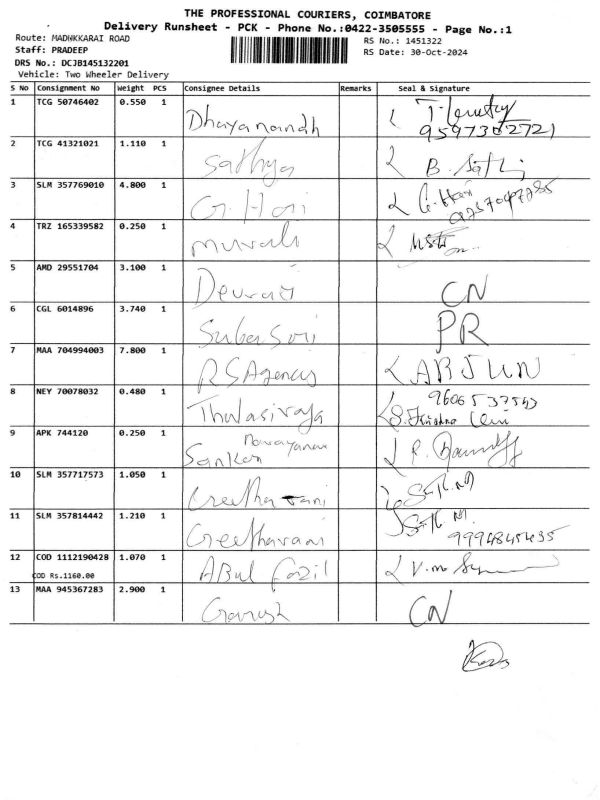 THE PROFESSIONAL COURIERS, COIMBATORE
Delivery Runsheet - PCK - Phone No.:0422-3505555 - Page No.:1
Route: MADHKKARAI ROAD RS No.: 1451322
Staff: PRADEEP RS Date: 30-Oct-2024
DRS No.: DCJB145132201
Vehicle: Two Wheeler Delivery
S No Consignment No Weight PCS Consignee Details Remarks Seal & Signature
1 TCG 50746402 0.550 1 Dhayanandh
9597302721
2 TCG 41321021 1.110 1 Sathya B.
3 SLM 357769010 4.800 1 G. Hari G. Hari
4 TRZ 165339582 0.250 1 murali
5 AMD 29551704 3.100 1 Devraj CN
6 CGL 6014896 3.740 1 PR
7 MAA 704994003 7.800 1 RS Agency ARJUN
8 NEY 70078032 0.480 1 Thulasiraja 9606537543
9 APK 744120 0.250 1 Sankar Narayanan
10 SLM 357717573 1.050 1 Geetha rani
11 SLM 357814442 1.210 1 Geetharani
9994845435
12 COD 1112190428 1.070 1 Abul fazil V.m
COD Rs.1160.00
13 MAA 945367283 2.900 1 Ganesh CN